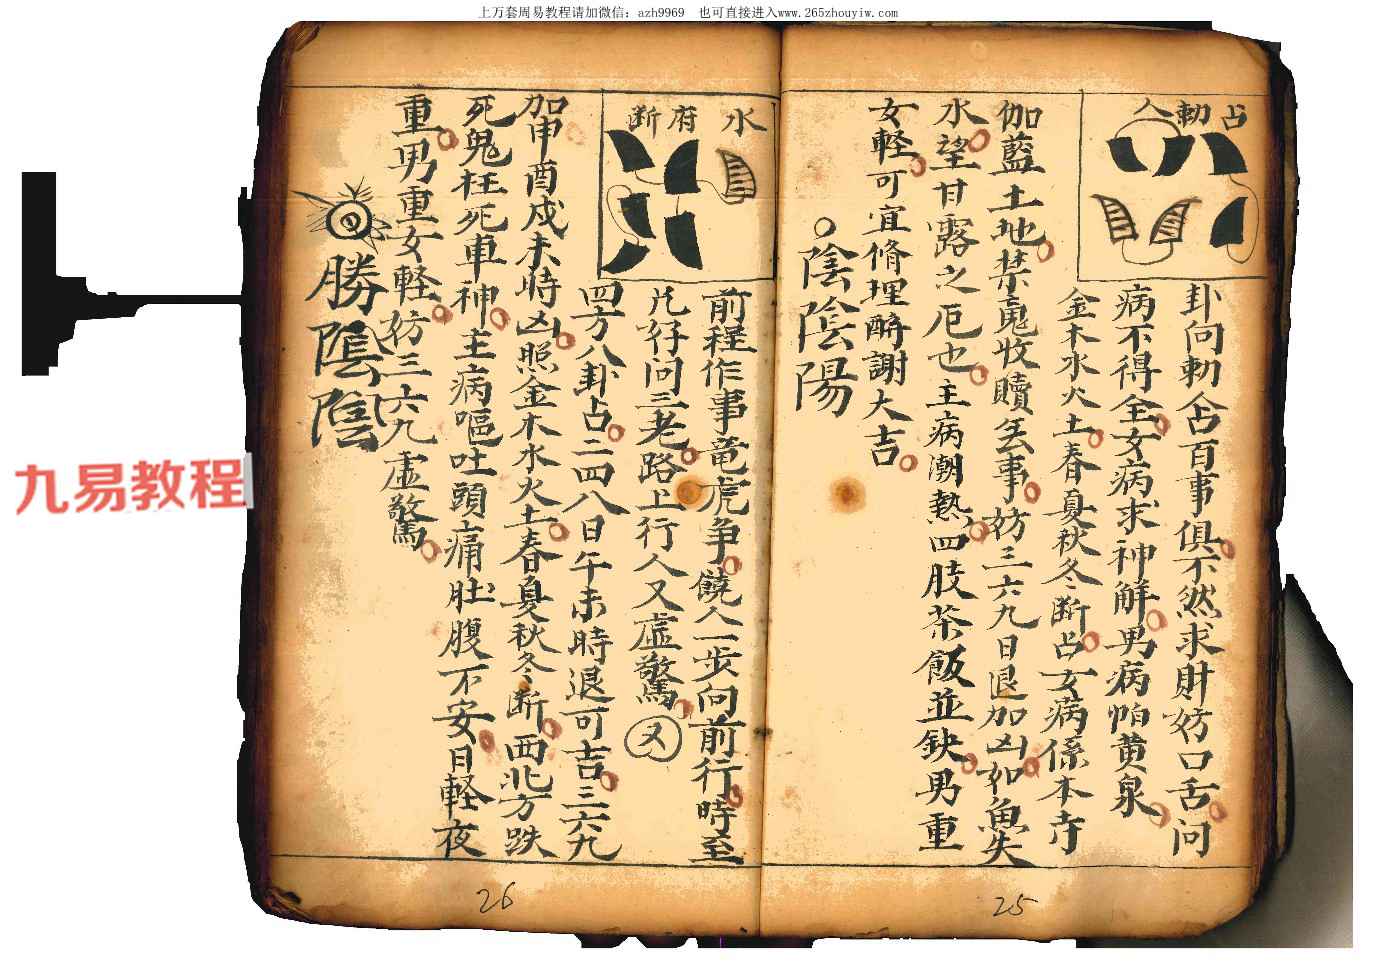 上万套周易教程请加微信：azh9969　也可直接进入www.265zhouyiw.com
占勅人
卦问勅人占百事俱不然求財妨口舌问
病不得全女病求神解男病怕黄泉
金木水火土春夏秋冬断占女病係本寺
伽藍土地禁鬼收贖丢事妨三六九日退加凶如魚失
水望甘露之厄也主病潮熱四肢茶飯並缺男重
女輕可宜脩理酧謝大吉
陰陰陽
25
水府断
前程作事竜虎争饒人一步向前行時至
凡好问三老路上行人又虚驚又
四方八卦占二四八日午未時退可吉三六九
加申酉戍未時凶照金木水火土春夏秋冬断西北方跌
死鬼枉死車神主病嘔吐頭痛肚腹不安日輕夜
重男重女輕妨三六九虚驚
勝陰陰
26
九易教程